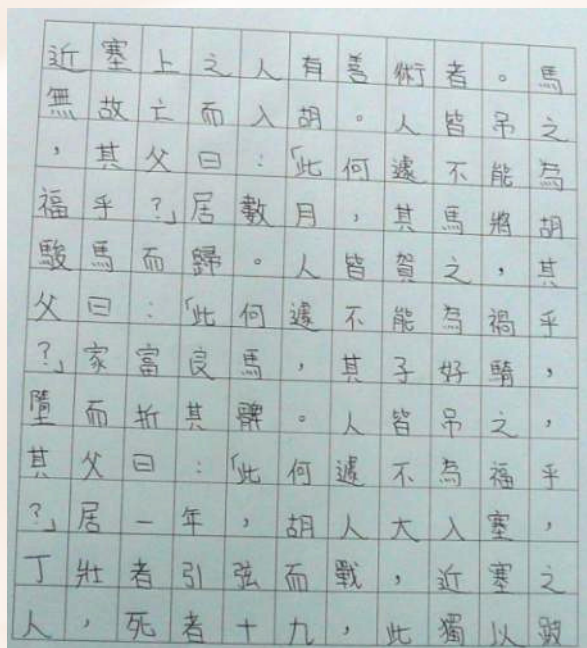 近塞上之人有善術者。馬
無故亡而入胡。人皆吊之
，其父曰：「此何遽不能為
福乎？」居數月，其馬將胡
駿馬而歸。人皆賀之，其
父曰：「此何遽不能為禍乎
？」家富良馬，其子好騎，
墮而折其髀。人皆吊之，
其父曰：「此何遽不為福乎
？」居一年，胡人大入塞，
丁壯者引弦而戰，近塞之
人，死者十九，此獨以跛